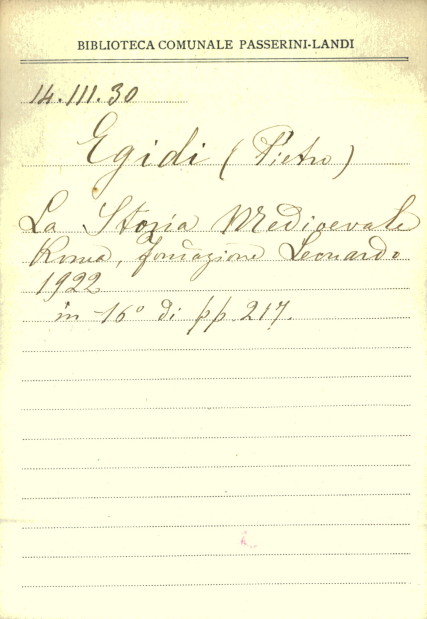 BIBLIOTECA COMUNALE PASSERINI-LANDI
14.III.30
Egidi (Pietro)
La Storia Medioevale
Roma, fondazione Leonardo
1922
in 16° di pp. 217.